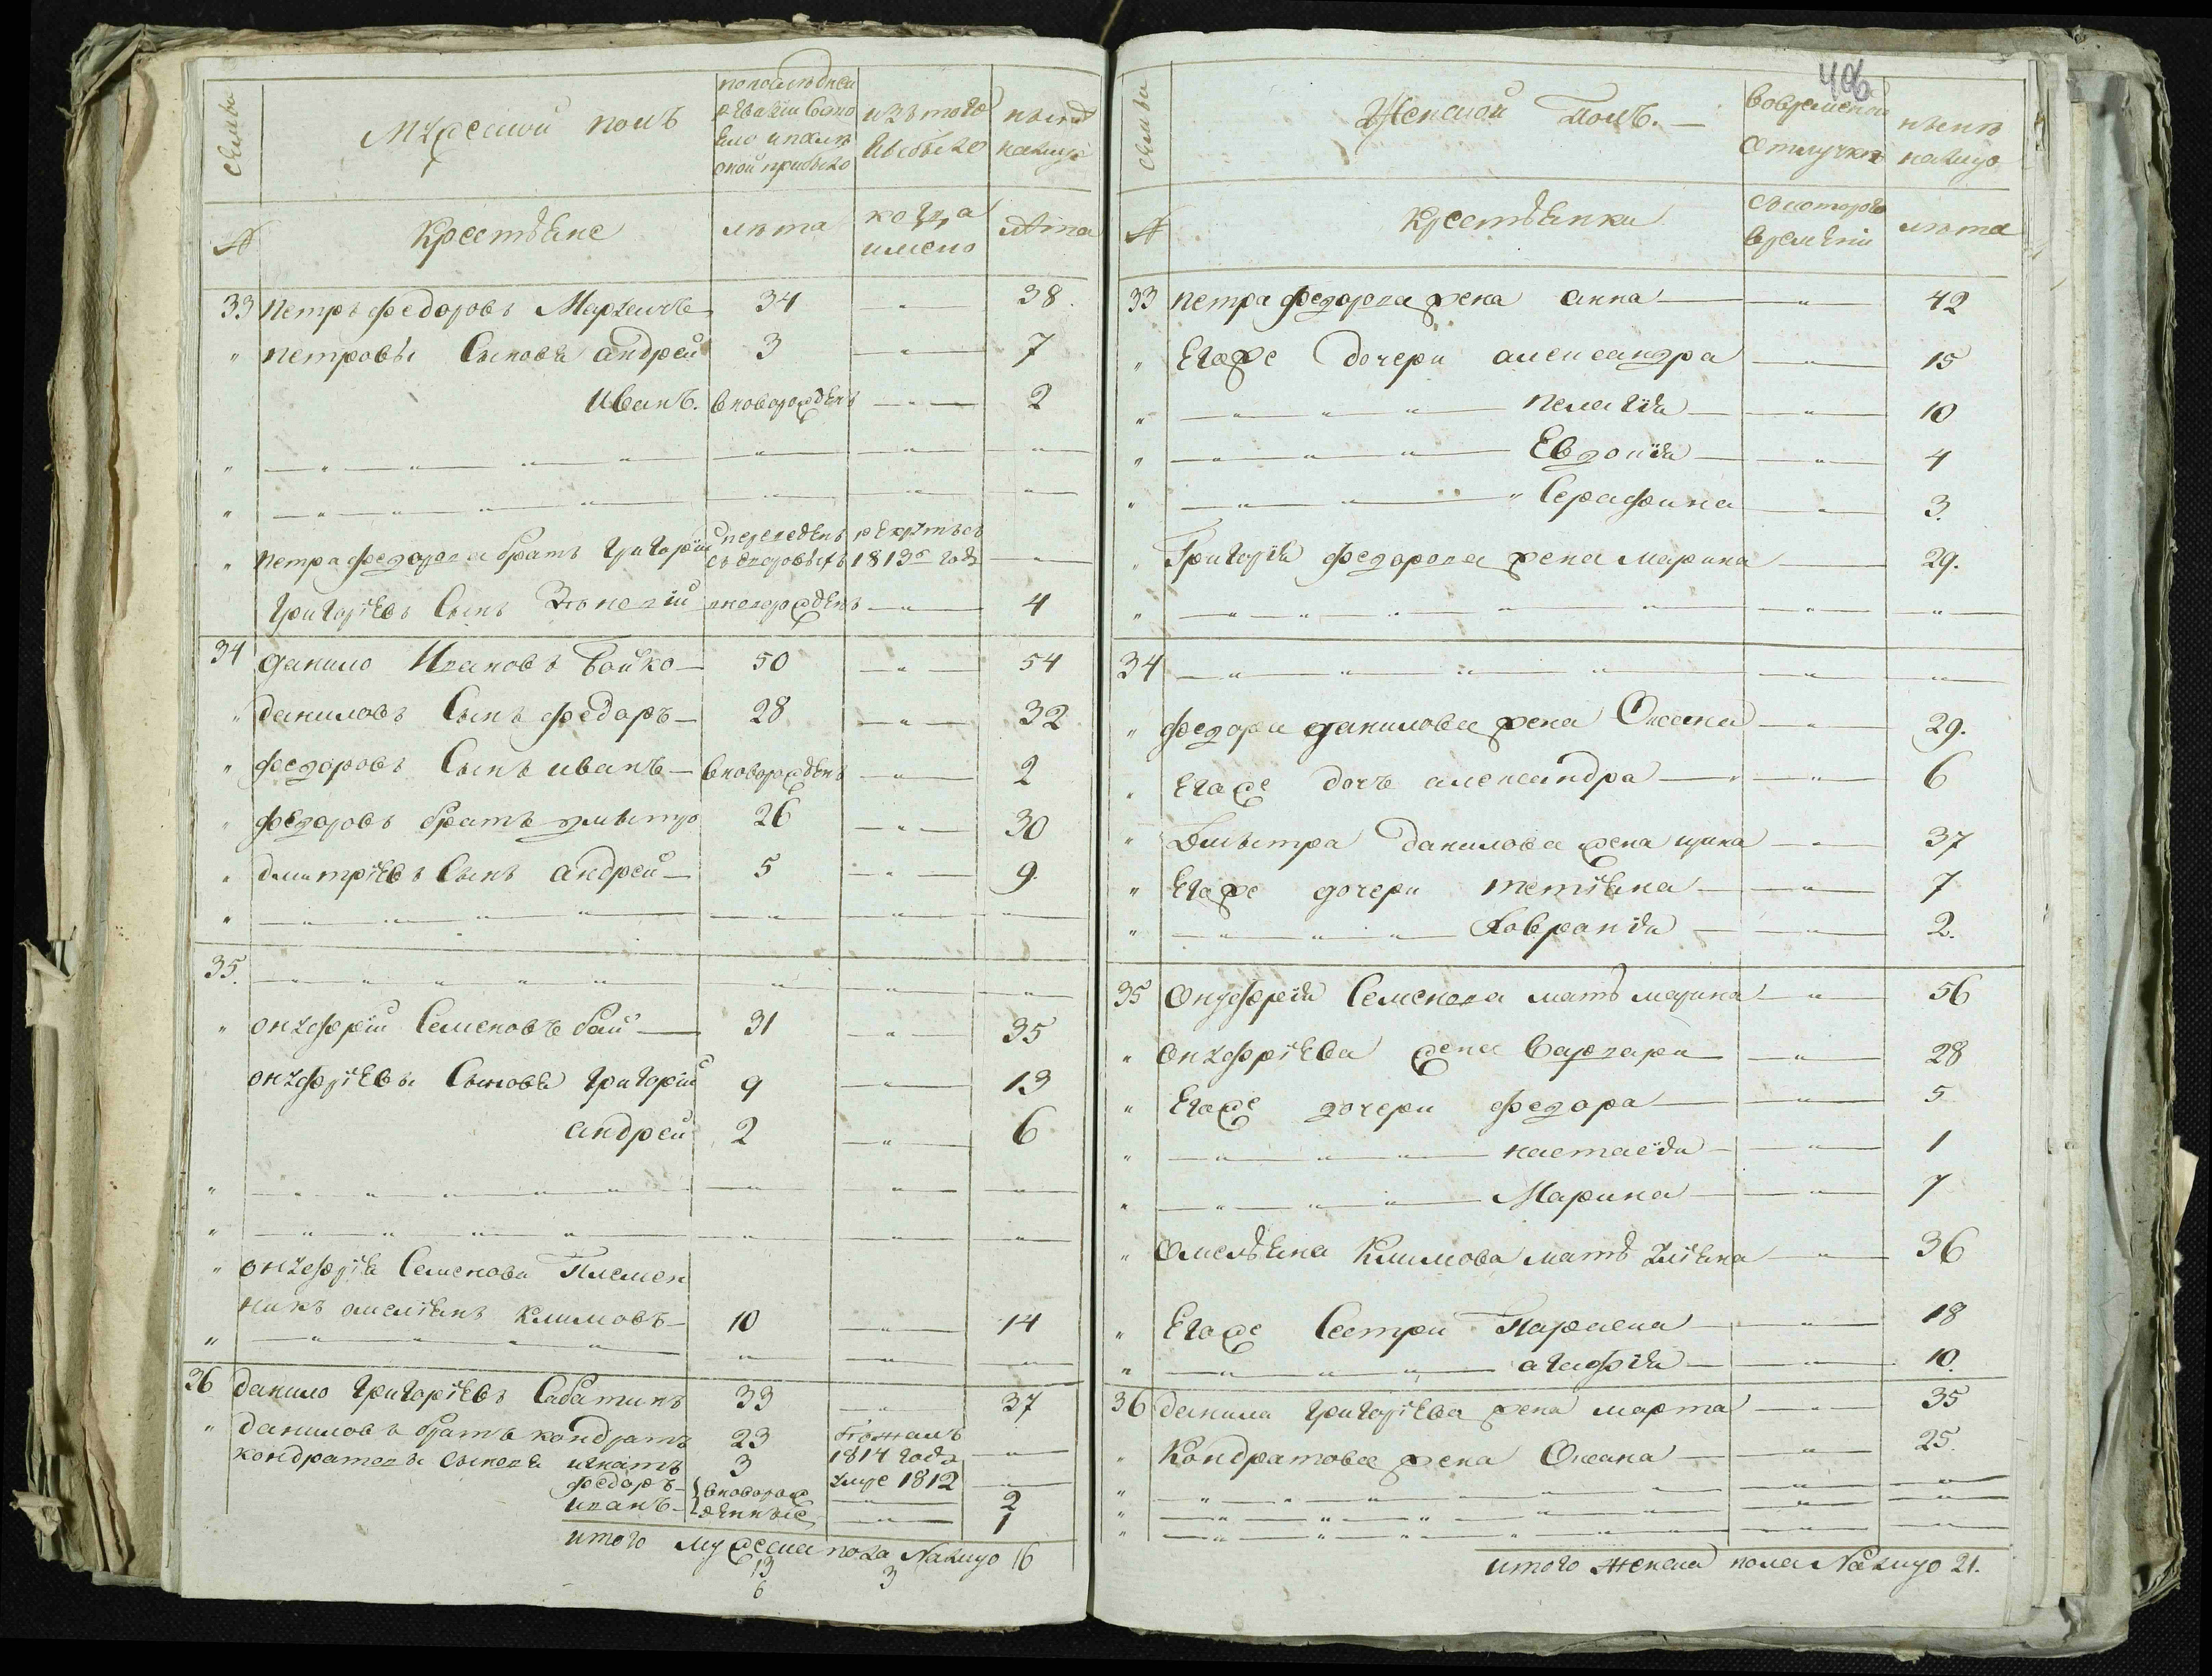 406
Семьи
Мужеской полъ
по последней ревизии состояло и после оной прибыло
изъ того выбыло
ныне налицо
№
Крестьяне
лета
когда имено
лета
33 Петръ Федоровъ 34 — 38.
" Петровы Сыновья андрей 3 — 7
Иванъ. вноворожденъ — 2
" Петра Федорова братъ Григорий рекрутъ въ 1813м годе —
Григориевъ Сынъ вноворожденъ — 4
34 Данило Ивановъ Бойко 50 — 54
" Даниловъ Сынъ федоръ 28 — 32
" федоровъ Сынъ иванъ вноворожденъ — 2
" федоровъ братъ дмытро 26 — 30
" дмитриевъ Сынъ андрей 5 — 9.
35.
" онуфрий Семеновъ бай 31 — 35
онуфриевы Сыновья григорий 9 — 13
андрей 2 — 6
" онуфрия Семенова Племен
никъ омелянъ Климовъ 10 — 14
36 Данило григориевъ Сабатинъ 33 — 37
" Даниловъ братъ кондратъ 23 1814 года —
кондратовы сыновья игнатъ 3 умре 1812 —
федоръ вноворож — 2
иванъ денные — 1
итого мужеска пола Налицо 16
13 3
6
Семьи
Женской Полъ.
вовременной отлучке
ныне налицо
№
Крестьянки
съ которого времени
лета
33 Петра федорова жена анна — 42
" Егоже дочери александра — 15
" пелагия — 10
" Евдокия — 4
" Серафина — 3.
" Григория федорова жена Марина — 29.
34
" федора данилова жена Оксана — 29.
" Егоже дочь александра — 6
" Дмытра данилова жена ирина — 37
" Егоже дочери тетяна — 7
" Ховрания — 2.
35 Онуфрия Семенова мать марина — 56
" онуфриева жена Варвара — 28
" Егоже дочери федора — 5
" настасия — 1
" Марина — 7
" Омеляна Климова мать улияна — 36
" Егоже Сестри Параска — 18
" агафия — 10.
36 Данила григориева жена марта — 35
" Кондратова жена Оксана — 25.
итого женска пола Налицо 21.